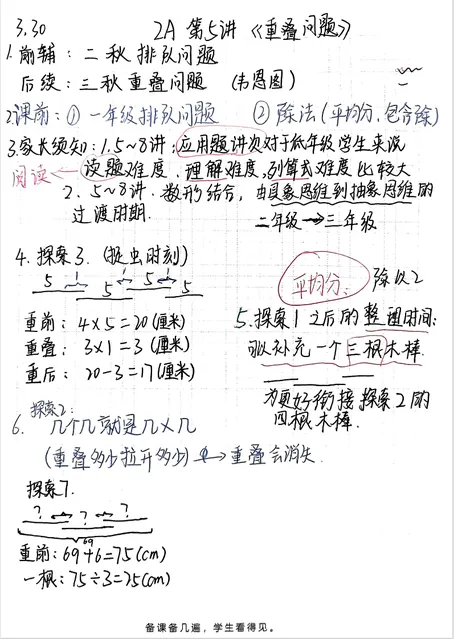 3.30 2A 第5讲 《重叠问题》
1.前辅：二秋排队问题
后续：三秋重叠问题 (韦恩图)
2.课前：① 一年级排队问题 ② 除法(平均分,包含除)
3.家长须知：1.5~8讲,应用题讲次对于低年级学生来说
阅读←读题难度、理解难度,列算式难度比较大
2、5~8讲.数形结合,由具象思维到抽象思维的
过渡时期.
二年级→三年级
4.探索3.(捉虫时刻)
5 1 5 1 5 1 5
重前：4×5=20(厘米)
重叠：3×1=3(厘米)
重后：20-3=17(厘米)
平均分: 除以2
5.探索1之后的整理时间:
可以补充一个三根木棒.
为更好衔接探索2的
四根木棒.
探索2:
6. 几个几就是几×几
(重叠多少拉开多少)↔重叠会消失.
探索7.
? ↔ ? ↔ ?
69
重前:69+6=75(cm)
一根:75÷3=75(cm)
备课备几遍，学生看得见。